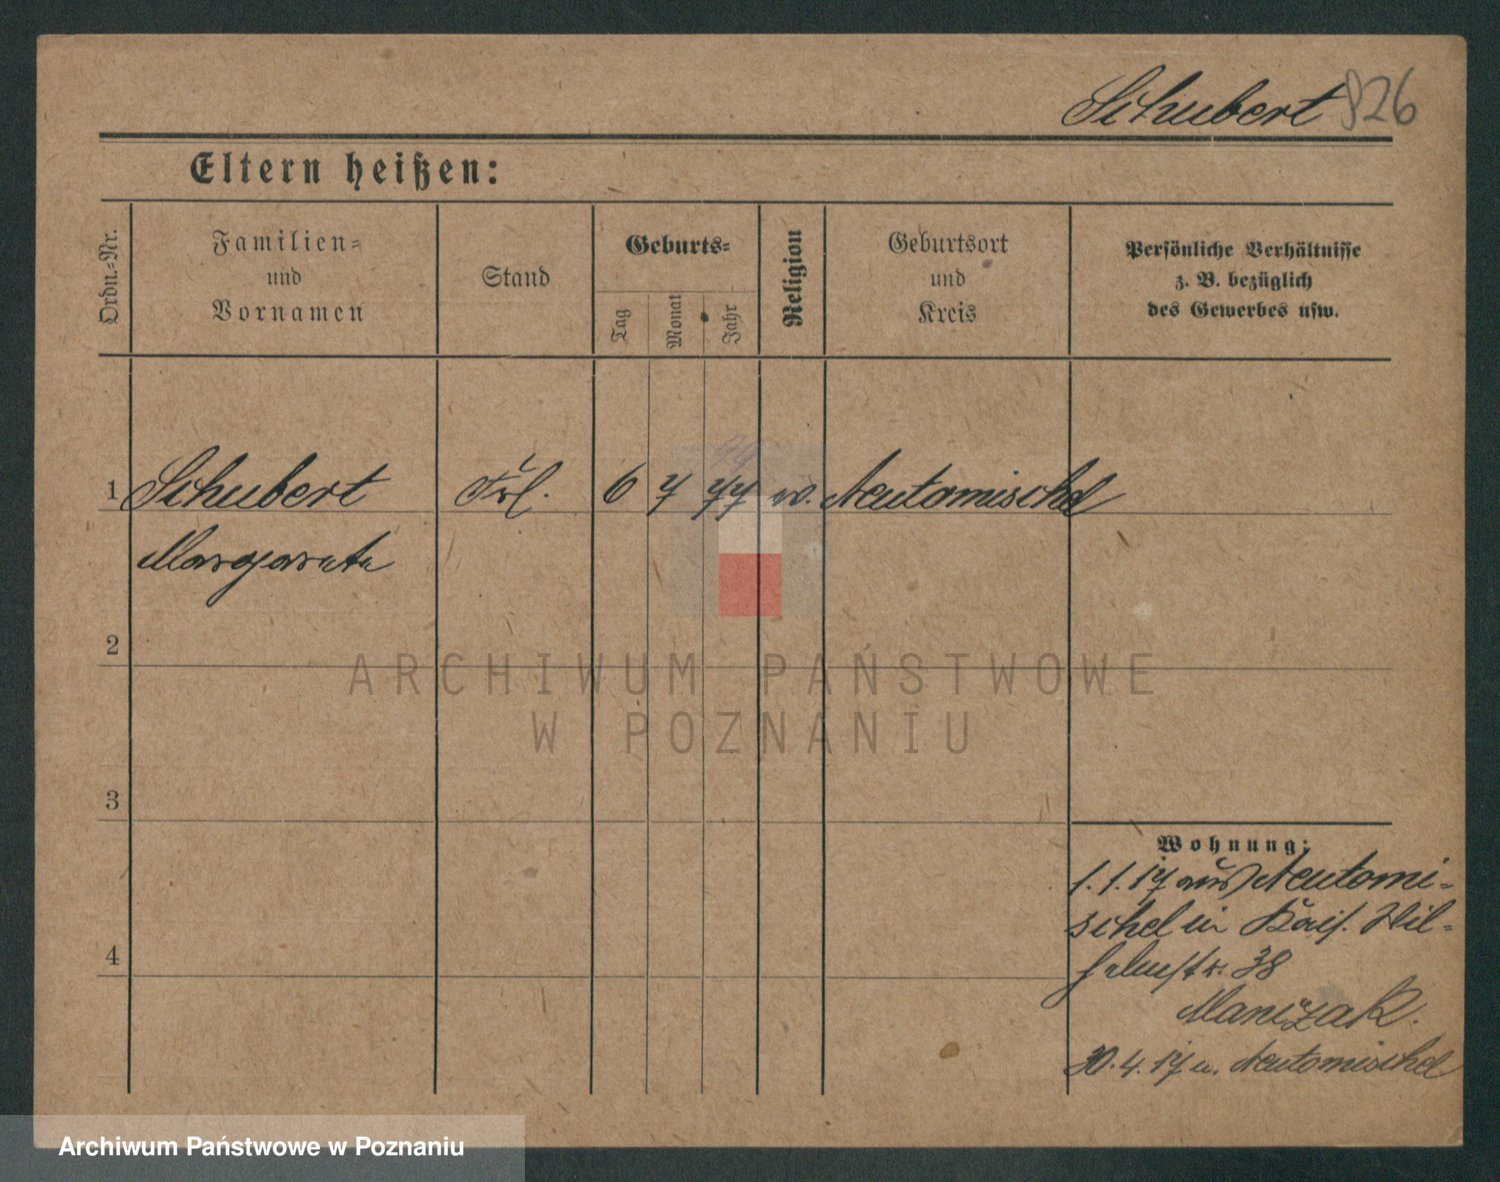 Schubert 826
Eltern heißen:
Ordn.-Nr.
Familien-
und
Vornamen
Stand
Geburts-
Tag
Monat
Jahr
Religion
Geburtsort
und
Kreis
Persönliche Verhältnisse
z. B. bezüglich
des Gewerbes usw.
1 Schubert Frl. 6 7 77 w. Neutomischel
Margarete
2
3
4
Wohnung:
1.1.17 aus Neutomi-
schel in Kais. Wil-
helmstr. 38
Manczak.
30.4.17 n. Neutomischel
ARCHIWUM PAŃSTWOWE
W POZNANIU
Archiwum Państwowe w Poznaniu